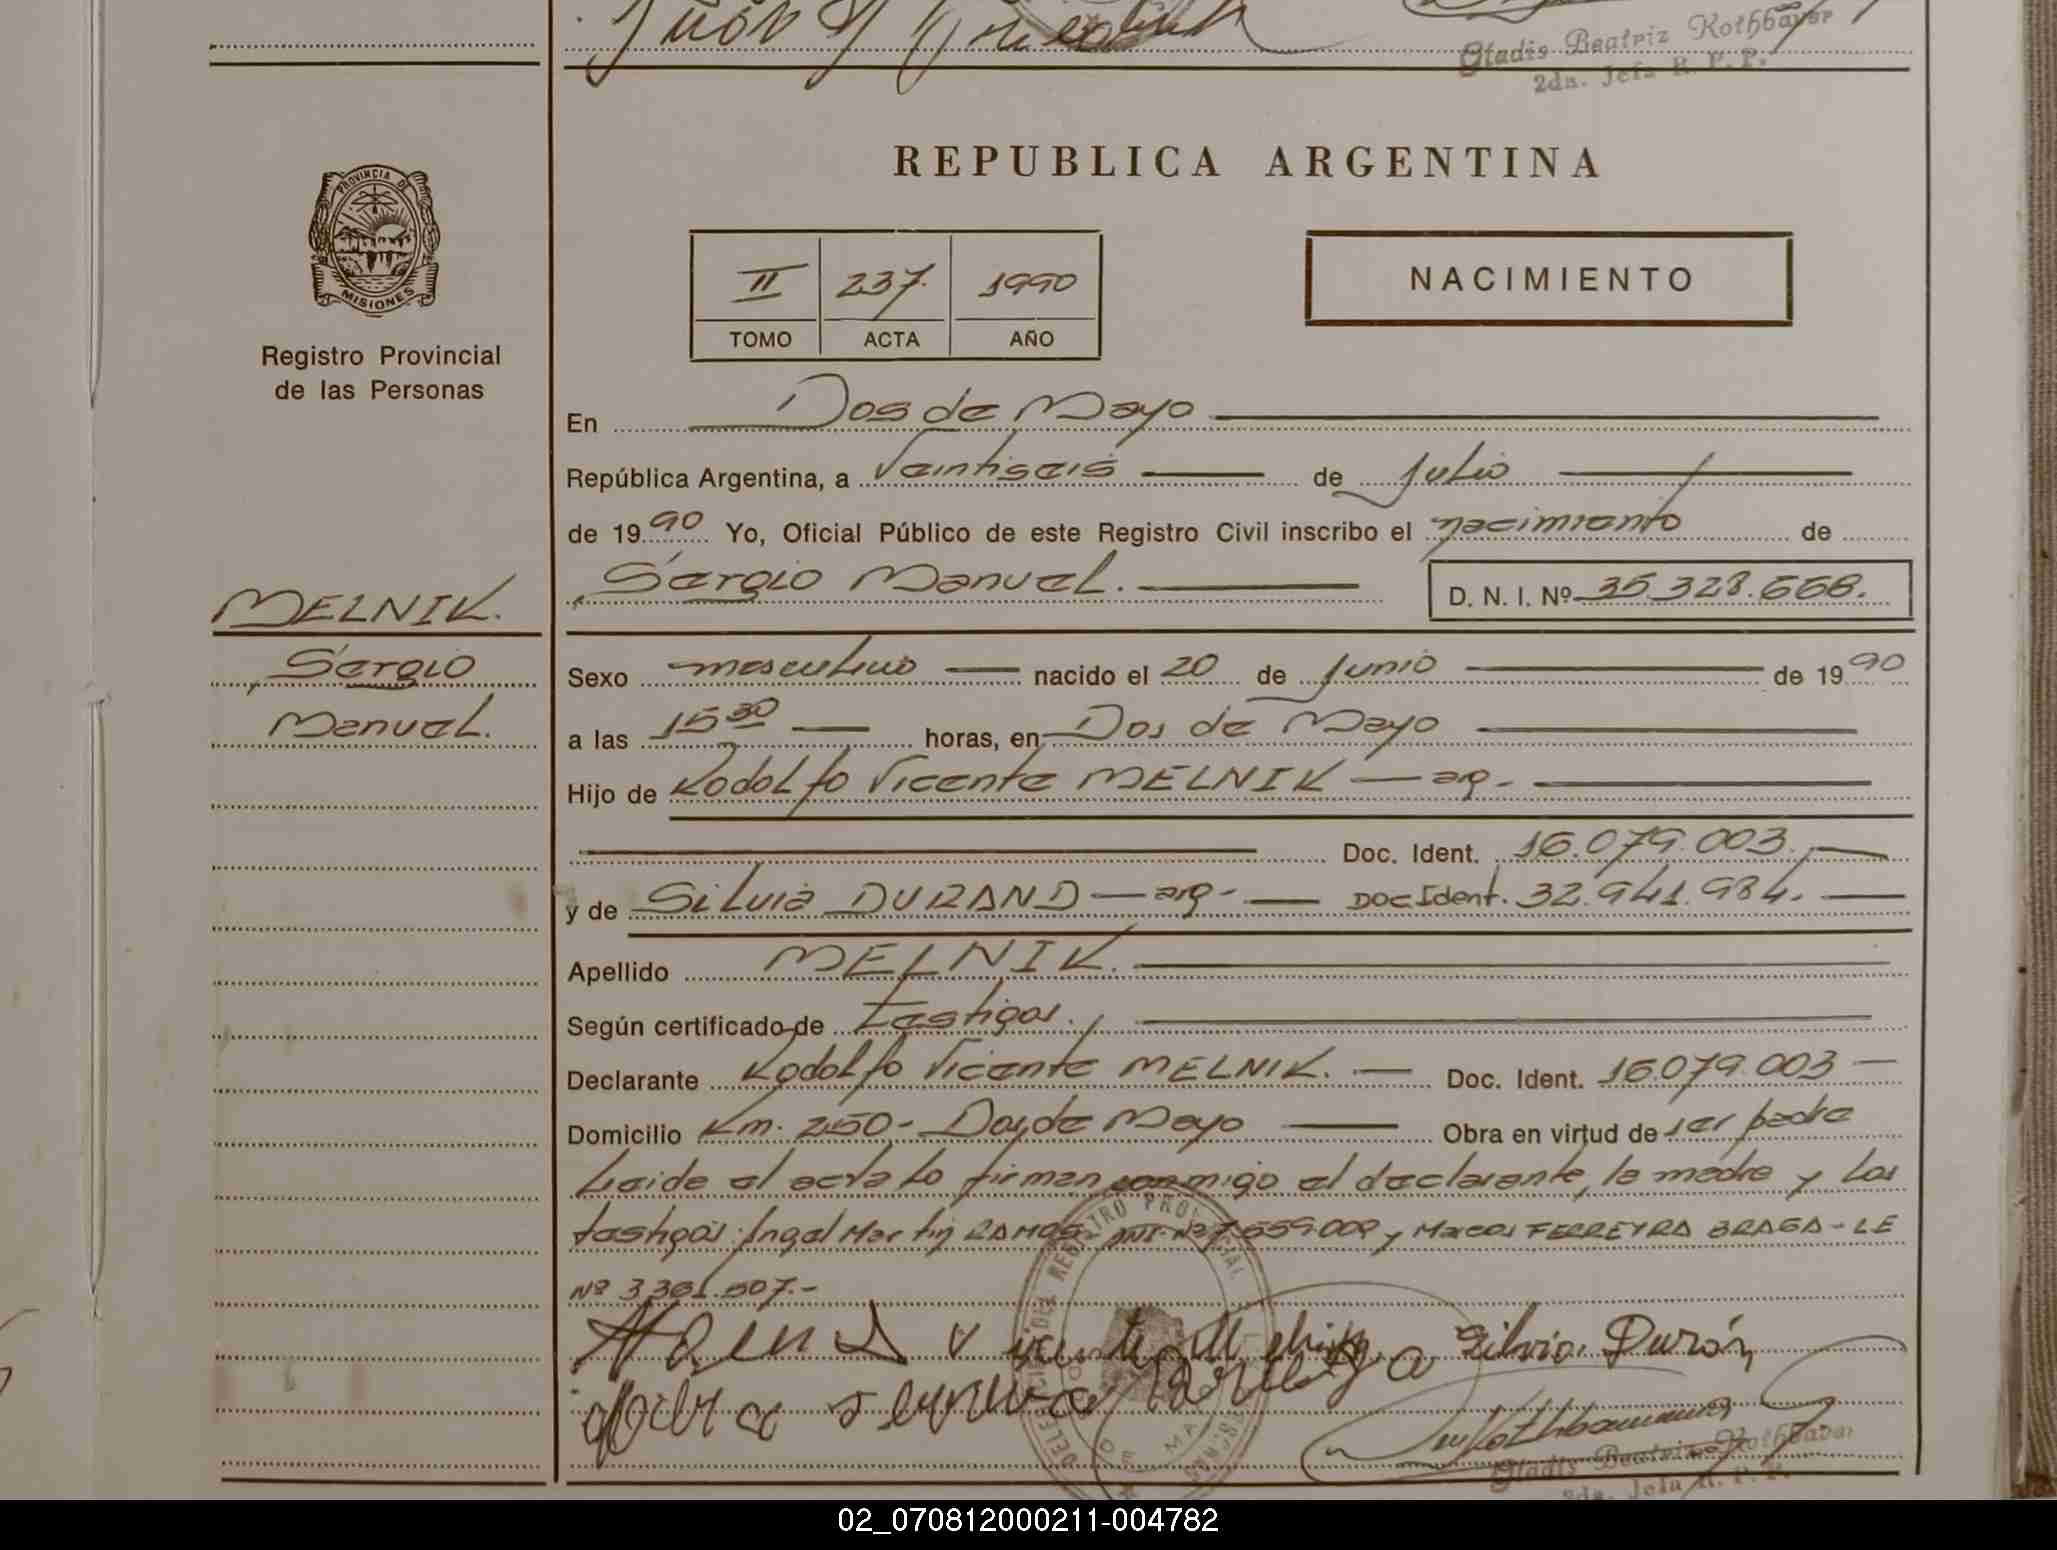 Gladis Beatriz Kothbayer
2da. Jefa R. P. P.
REPUBLICA ARGENTINA
PROVINCIA DE
MISIONES
Registro Provincial
de las Personas
II 237. 1990
TOMO ACTA AÑO
NACIMIENTO
En Dos de Mayo
República Argentina, a Veintiseis de Julio
de 1990 Yo, Oficial Público de este Registro Civil inscribo el nacimiento de
Sergio Manuel. D. N. I. Nº 35.328.668.
MELNIK.
Sergio
Manuel.
Sexo masculino nacido el 20 de Junio de 1990
a las 15 30 horas, en Dos de Mayo
Hijo de Rodolfo Vicente MELNIK — arg-
Doc. Ident. 16.079.003.
y de Silvia DURAND — arg- Doc Ident. 32.941.984.
Apellido MELNIK.
Según certificado de Testigos.
Declarante Rodolfo Vicente MELNIK. Doc. Ident. 16.079.003
Domicilio Km. 250- Dos de Mayo Obra en virtud de ser padre
Leida el acta lo firman conmigo el declarante, la madre y los
testigos: Angel Martin RAMOS- DNI- Nº 7.559.009 y Marcos FERREYRA BRAGA - LE
Nº 3.361.507.-
Silvia Durán
Gladis Beatriz Kothbayer
2da. Jefa R. P. P.
02_070812000211-004782